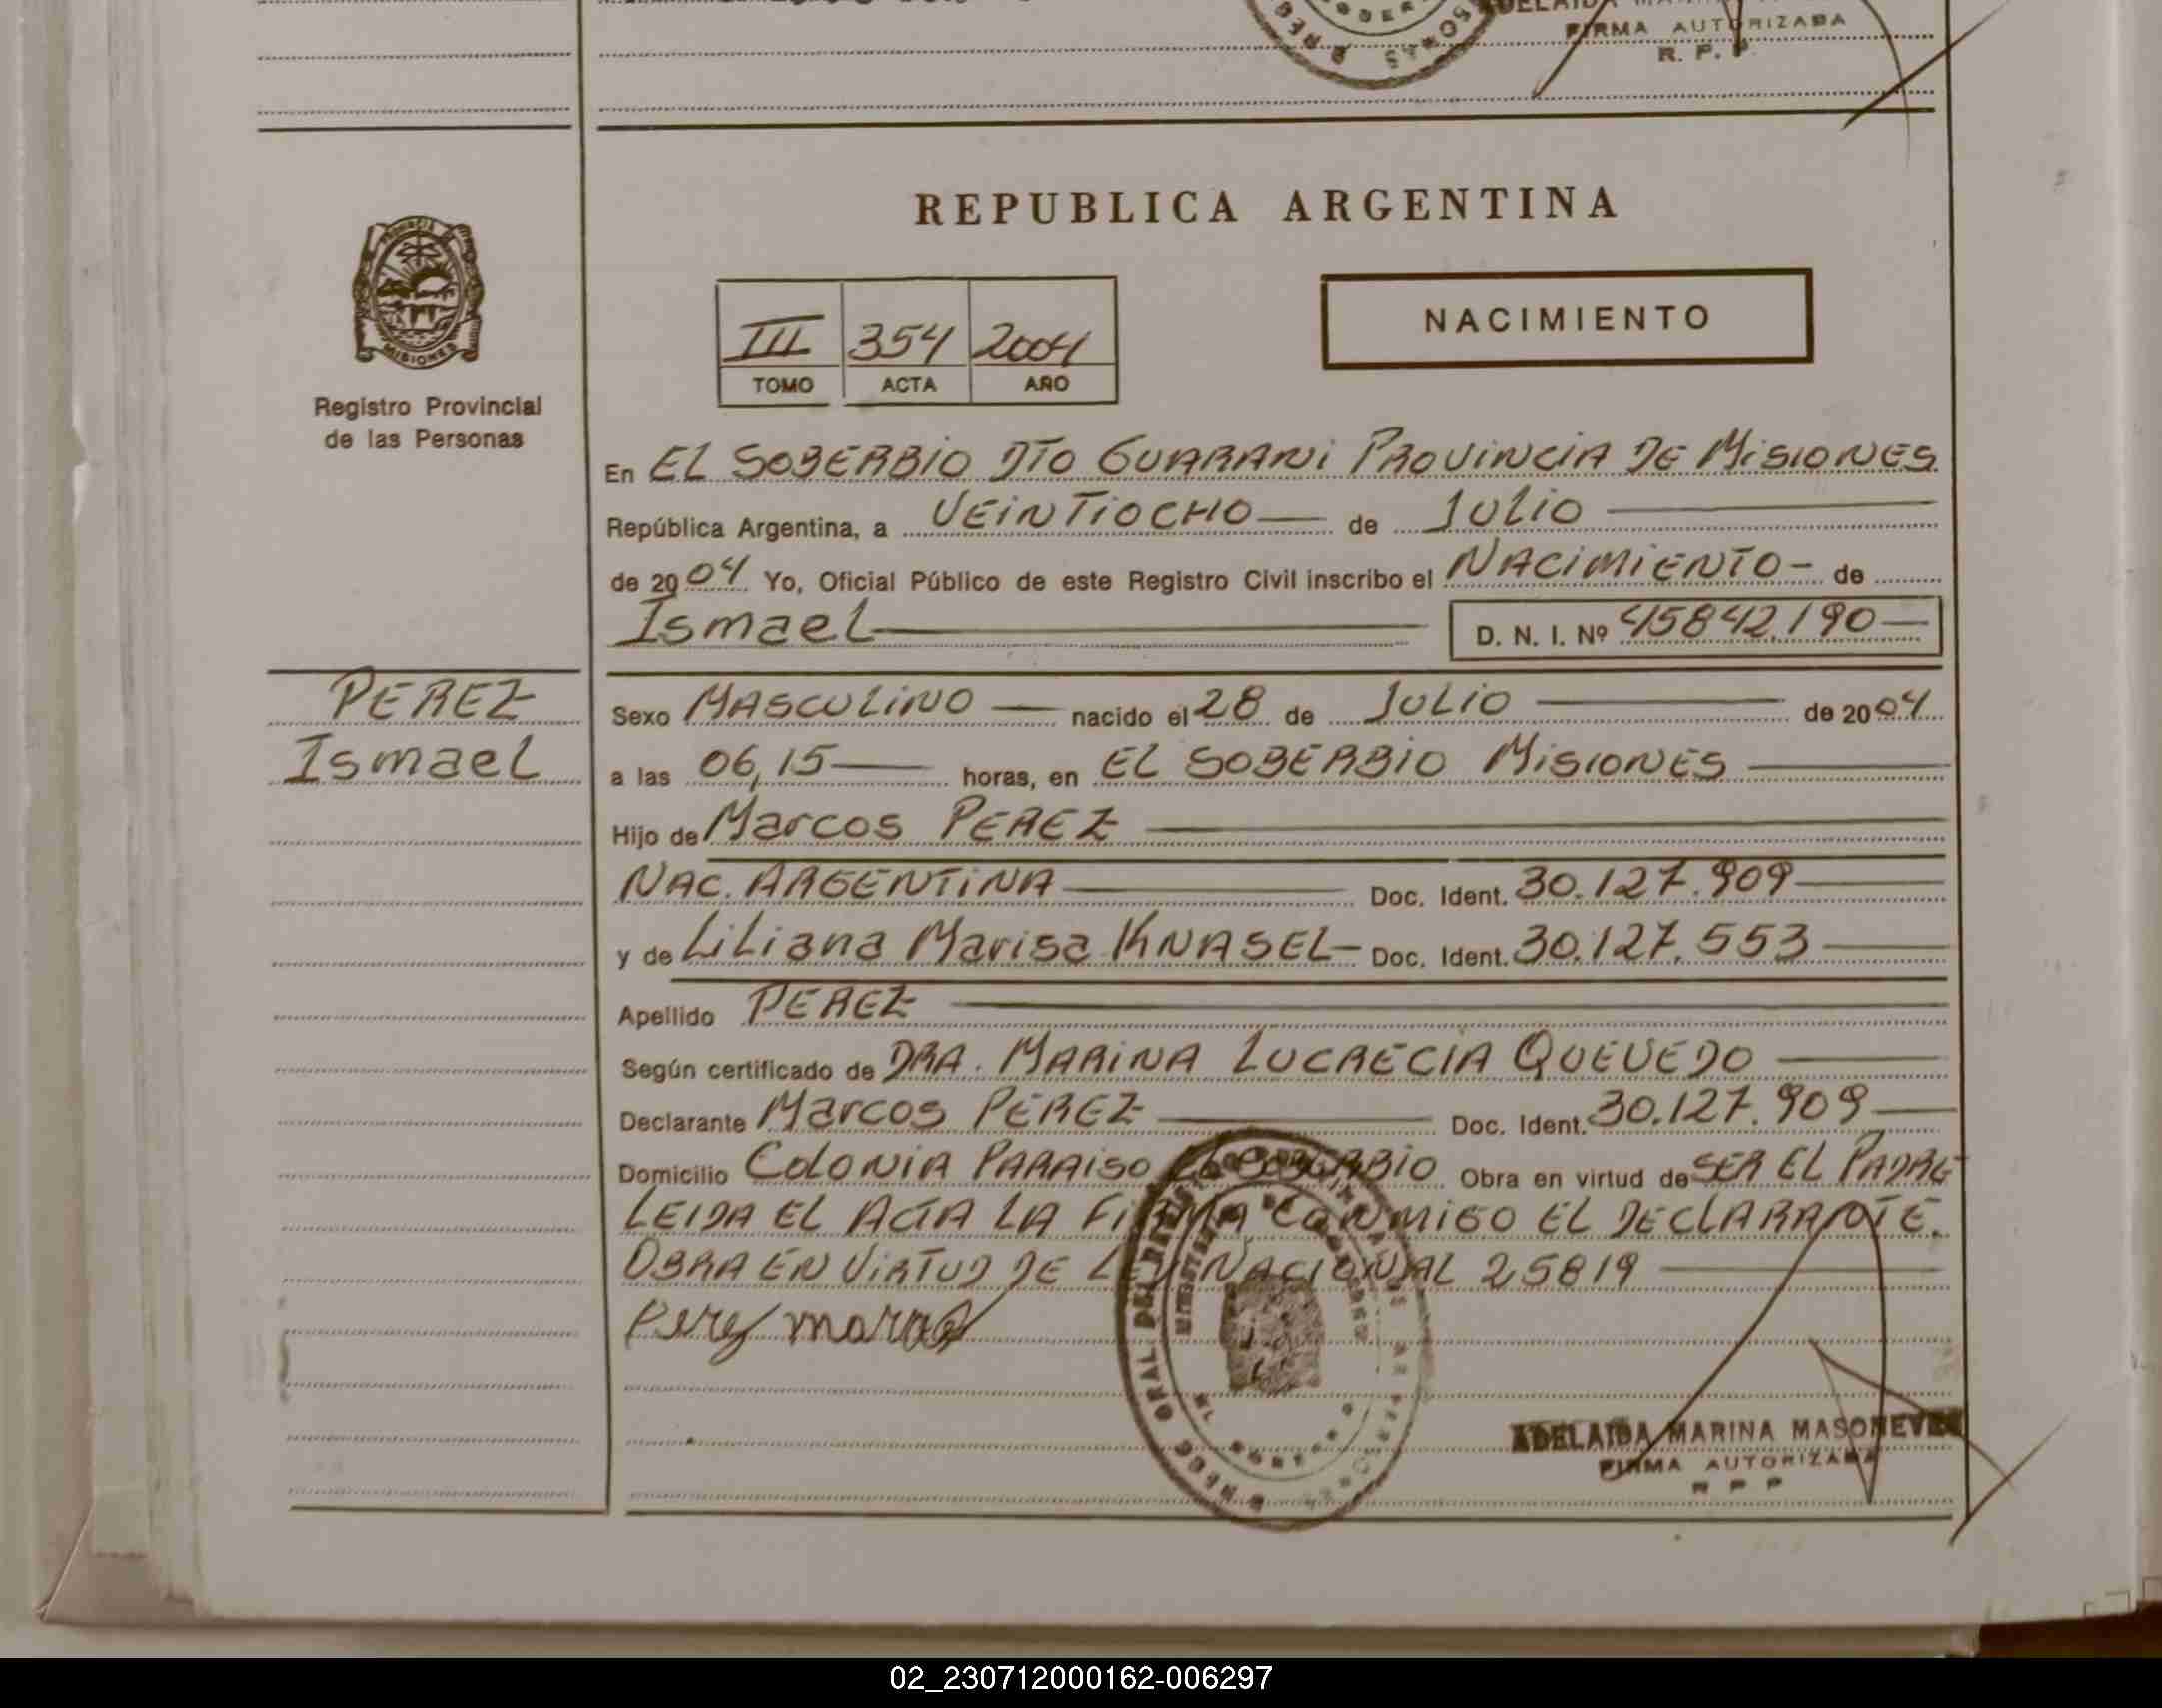 FIRMA AUTORIZADA
R. P. P.
REPUBLICA ARGENTINA
NACIMIENTO
III 354 2004
TOMO ACTA AÑO
MISIONES
Registro Provincial
de las Personas
En EL SOBERBIO DTO GUARANI PROVINCIA DE MISIONES
República Argentina, a VEINTIOCHO de JULIO
de 2004 Yo, Oficial Público de este Registro Civil inscribo el NACIMIENTO- de
Ismael D. N. I. Nº 45842.190
PEREZ
Ismael
Sexo MASCULINO nacido el 28 de JULIO de 2004
a las 06,15 horas, en EL SOBERBIO MISIONES
Hijo de Marcos PEREZ
NAC. ARGENTINA Doc. Ident. 30.127.909
y de Liliana Marisa KNASEL Doc. Ident. 30.127.553
Apellido PEREZ
Según certificado de DRA. MARINA LUCRECIA QUEVEDO
Declarante Marcos PEREZ Doc. Ident. 30.127.909
Domicilio COLONIA PARAISO EL SOBERBIO Obra en virtud de SER EL PADRE
LEIDA EL ACTA LA FIRMA CONMIGO EL DECLARANTE.
OBRA EN VIRTUD DE LEY NACIONAL 25819
Perez marcos
ADELAIDA MARINA MASONEVES
FIRMA AUTORIZADA
R P P
02_230712000162-006297